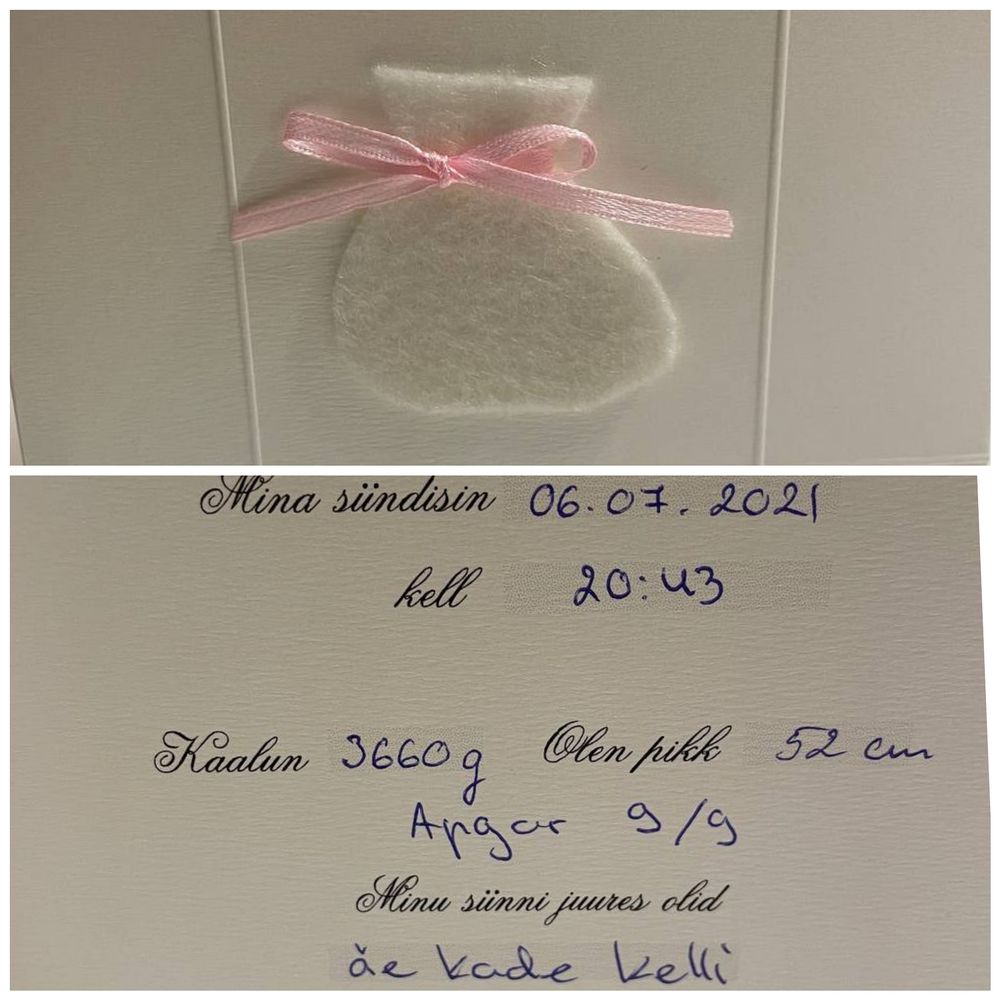 Mina sündisin 06.07.2021
kell 20:43
Kaalun 3660g Olen pikk 52 cm
Apgar 9/9
Minu sünni juures olid
äe Kade Kelli